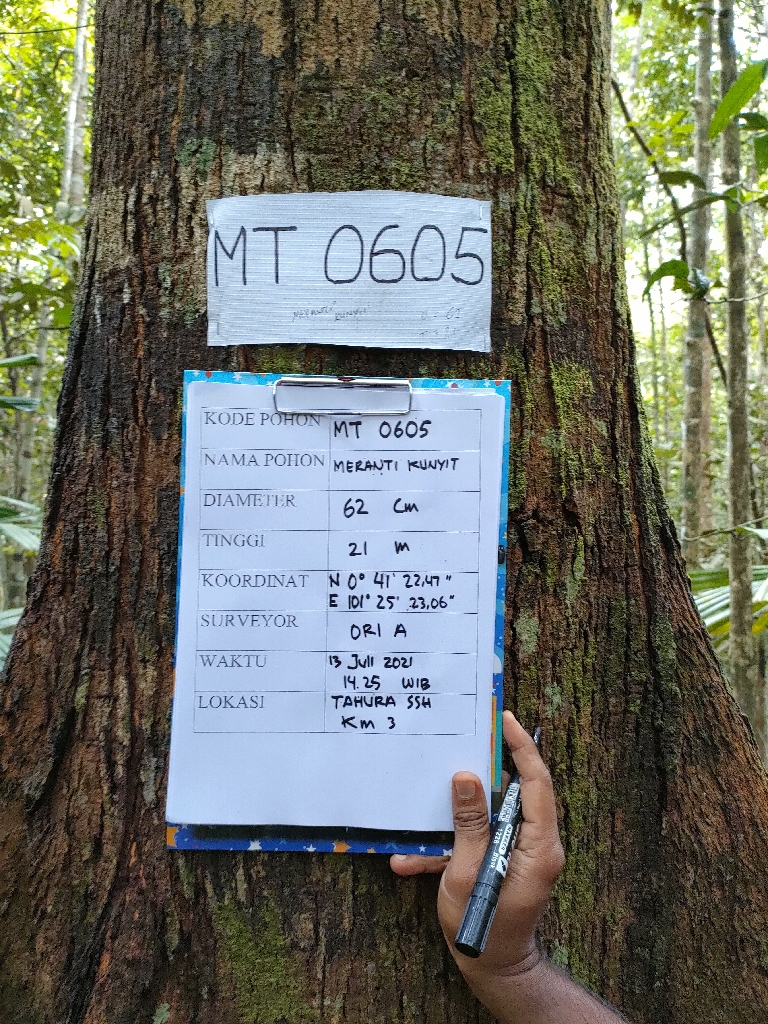 MT 0605
MERANTI KUNYIT
KODE POHON MT 0605
NAMA POHON MERANTI KUNYIT
DIAMETER 62 Cm
TINGGI 21 m
KOORDINAT N 0° 41' 22,47"
E 101° 25' 23,06"
SURVEYOR ORI A
WAKTU 13 JULI 2021
14.25 WIB
LOKASI TAHURA SSH
Km 3